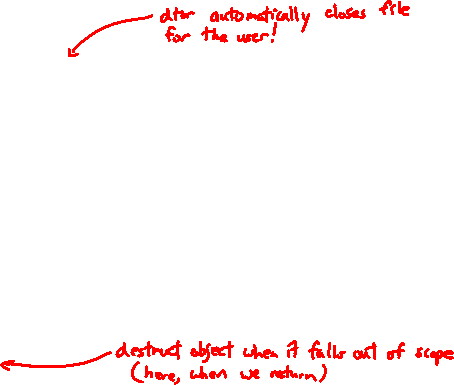 dtor automatically closes file
for the user!
destruct object when it falls out of scope
(here, when we return)